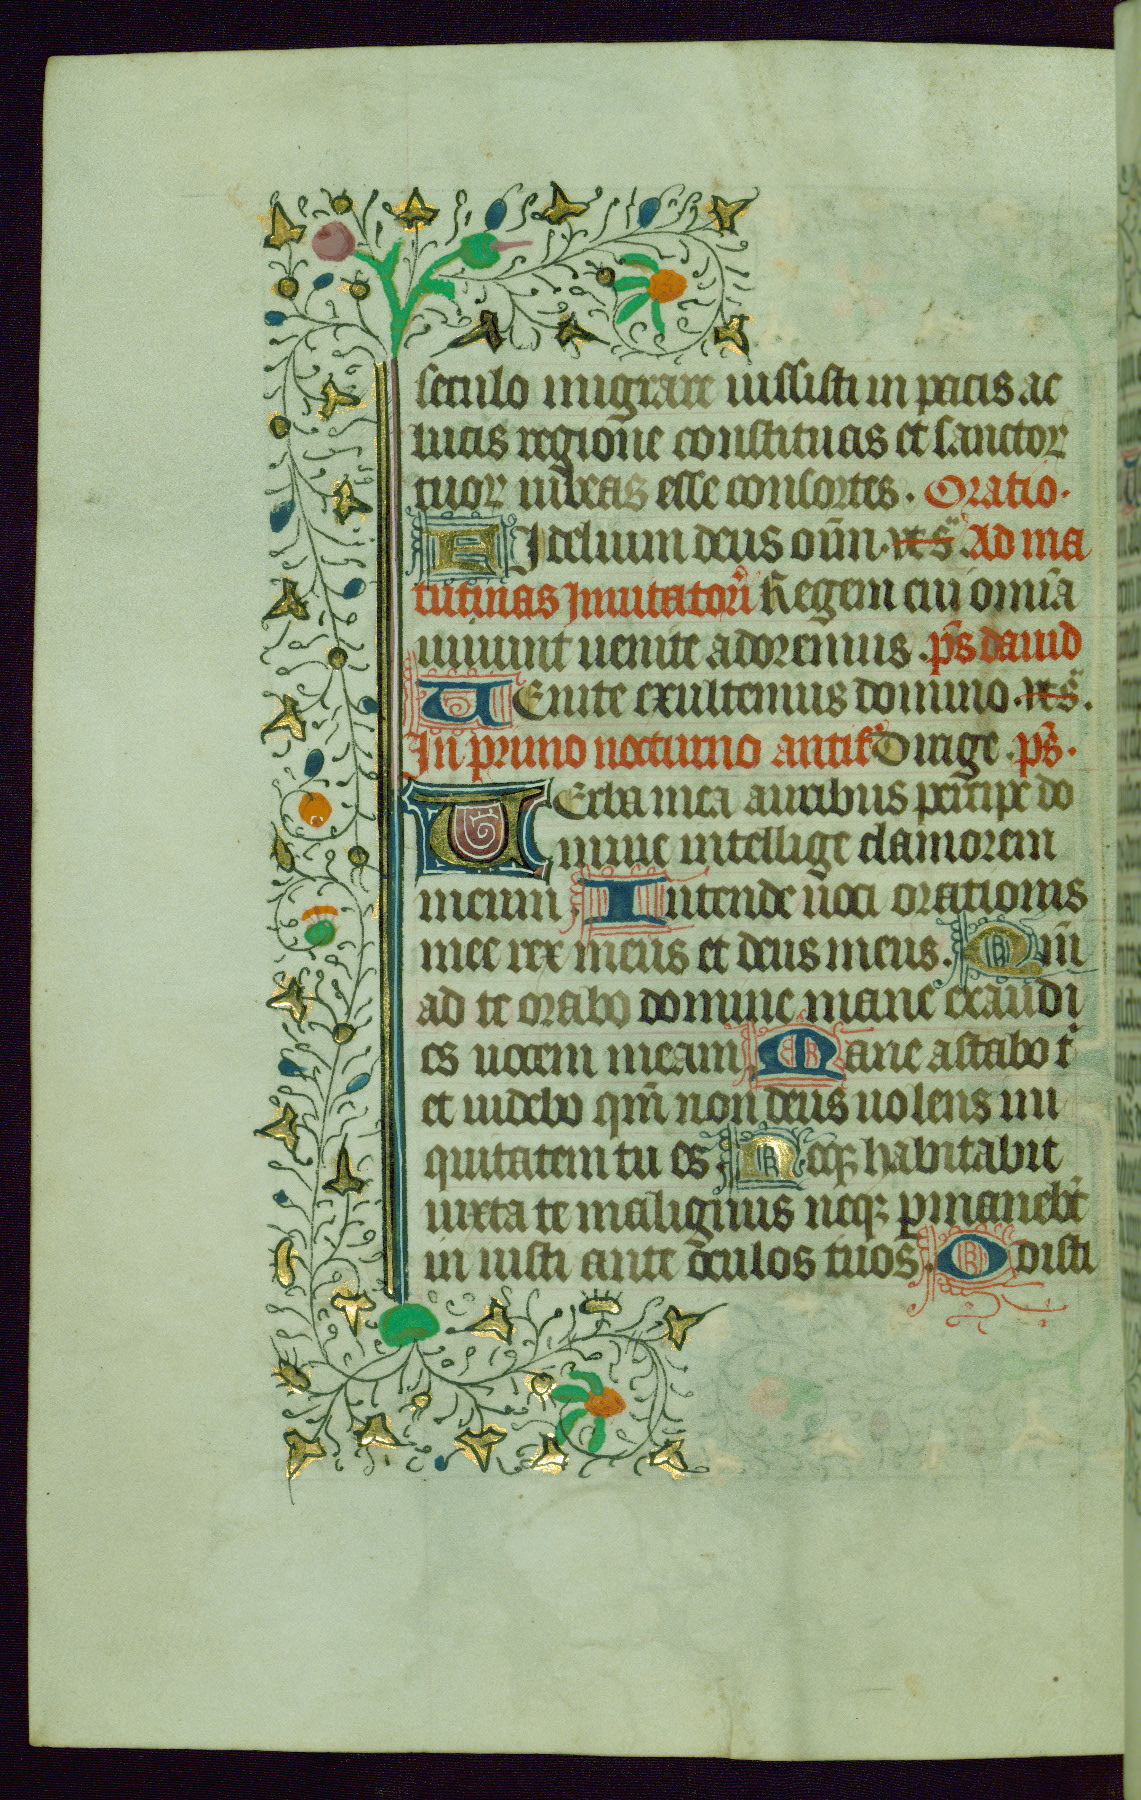 seculo migrare iussisti in pacis ac
lucis regione constituas et sanctor
tuor iubeas esse consortes. Oratio.
FIdelium deus om̄. Ad ma
tutinas Inuitator̄ Regem cui omīa
uiuunt uenite adoremus. ps̄ dauid
UEnite exultemus domino.
In primo nocturno antiḟ Dirige. ps̄.
UErba mea auribus percipe do
mine intellige clamorem
meum. Intende uoci orationis
mee rex meus et deus meus. Qm̄
ad te orabo domine mane exaudi
es uocem meam. Mane astabo t̄
et uidebo qm̄ non deus uolens ini
quitatem tu es. Neqꝫ habitabit
iuxta te malignus neqꝫ ꝑmanebt̄
in iusti ante oculos tuos. Odisti